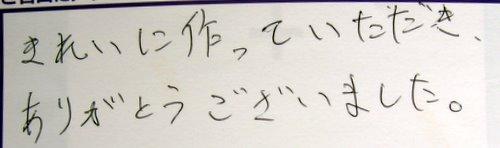 きれいに作っていただき、
ありがとうございました。